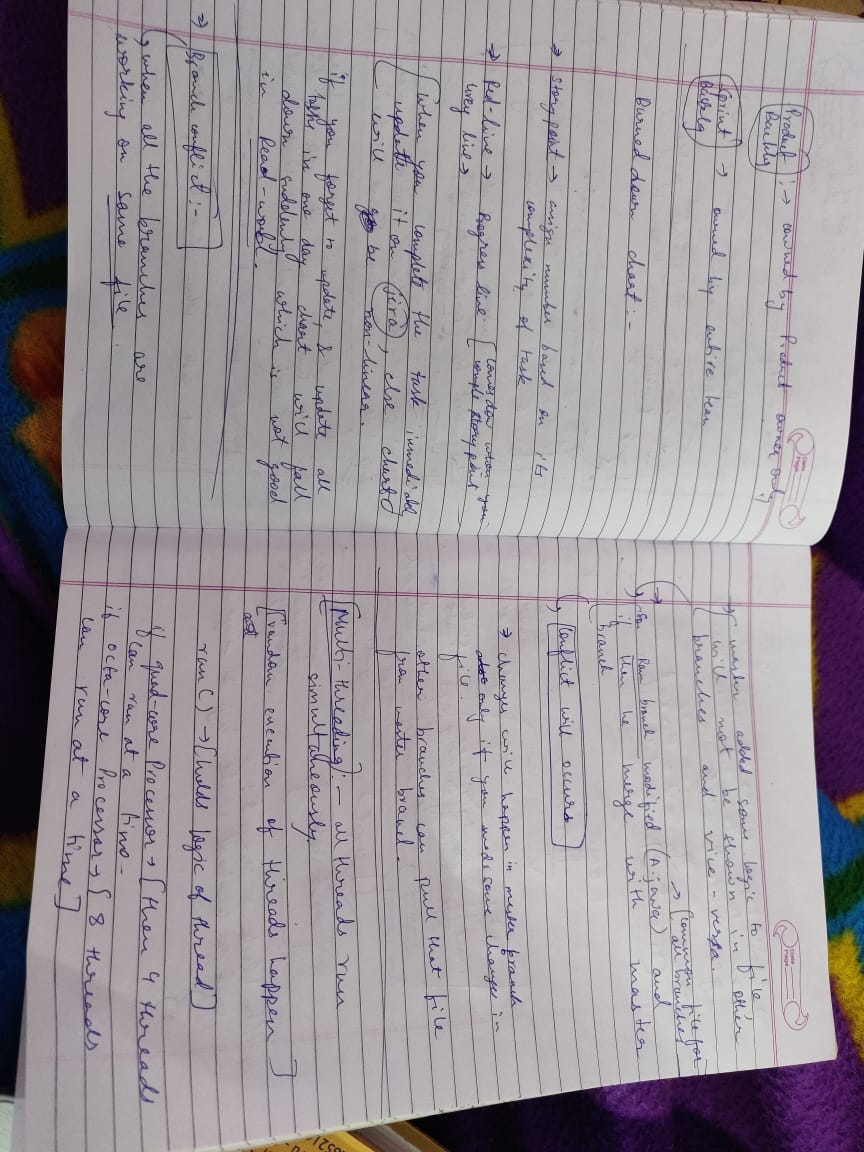 Product Backlog :→ owned by Product owner only
Sprint Backlog → owned by entire team
Burned down chart :-
→ Story point → assign number based on its
complexity of task
→ Red-line → Progress line [comes down when you
Grey line → story point
When you complete the task immediately
update it on jira, else chart
will be non-linear.
if you forget to update, & update all
tasks in one day chart will fall
down suddenly which is not good
in Real-world.
⇒ Branch conflict :-
↳ when all the branches are
working on same file.
Date
Page
→ master added some logic to file
will not be shown in other
branches and vice-versa.
→ [Common file for
all branches
Ram branch modified (A.java) and
if then he merge with master
branch
↳ Conflict will occurs
→ changes will happen in master branch
only if you made some changes in
file.
other branches can pull that file
from master branch.
[Multi-threading] :- all threads run
simultaneously.
[random execution of threads happen]
run() → [holds logic of thread]
if quad-core Processor → [then 4 threads
can run at a time.
if octa-core Processor → [8 threads
can run at a time]
Date
Page